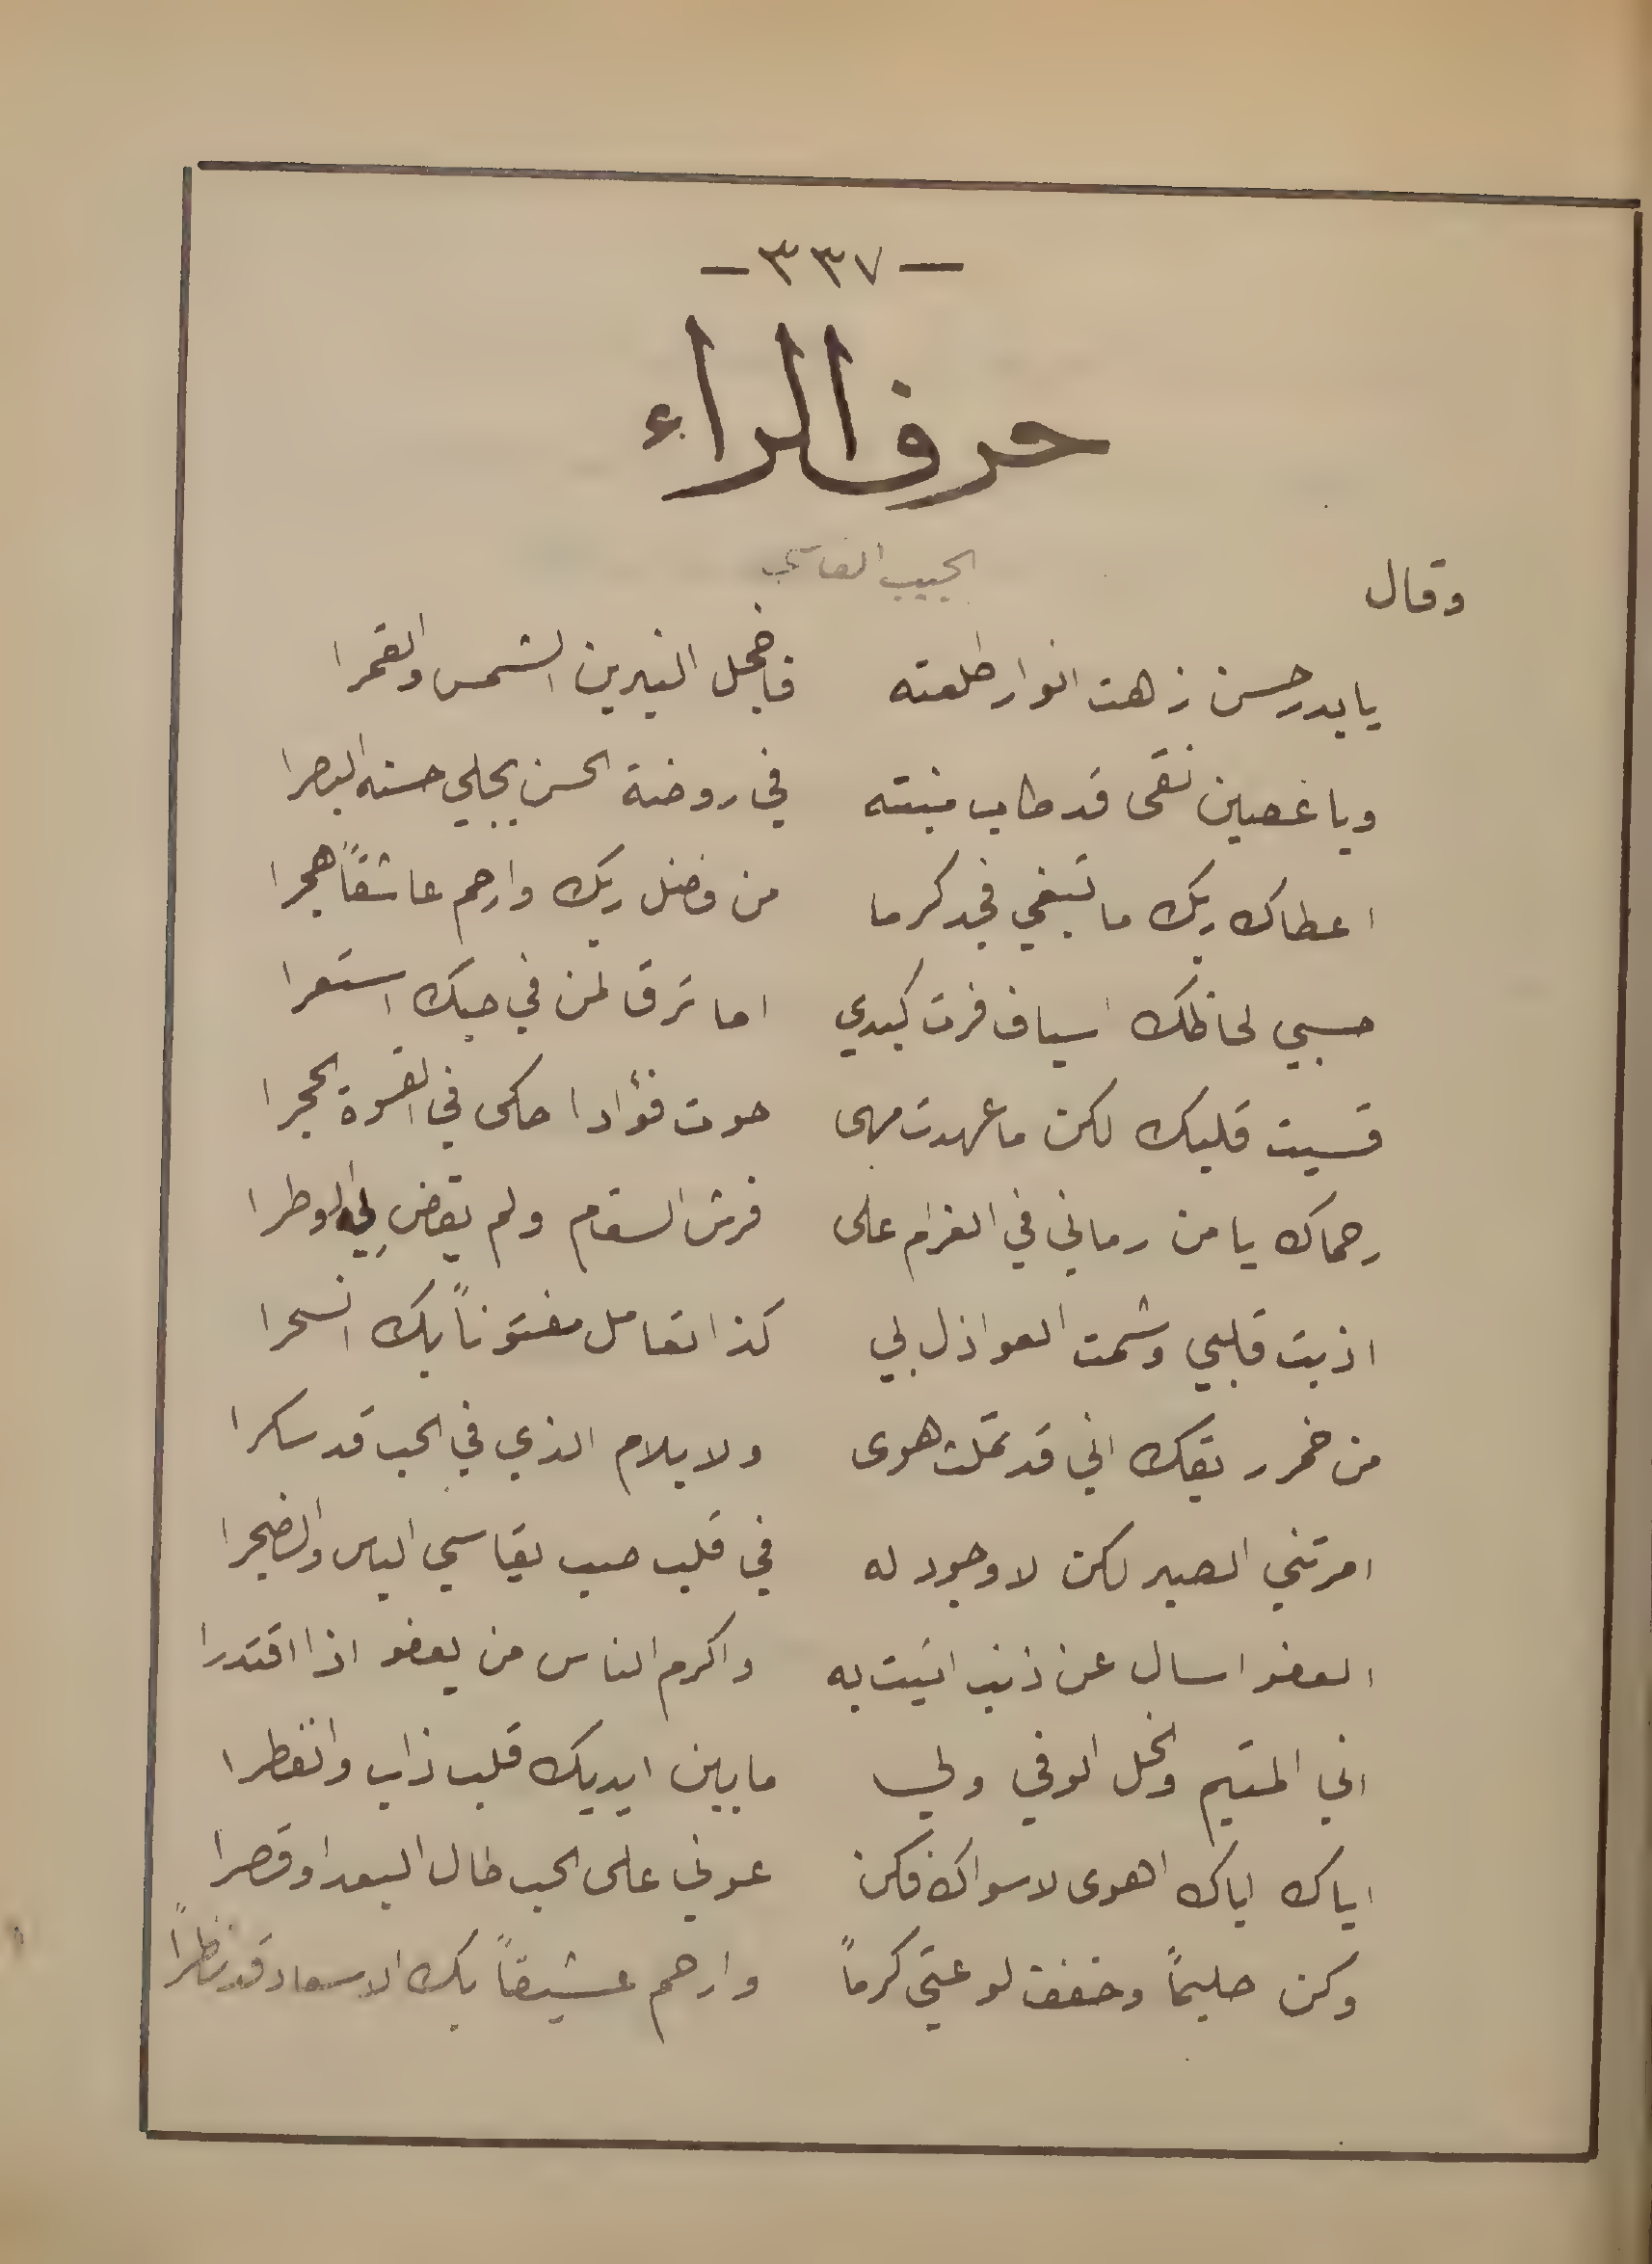 - ٣٣٧ -
حرف الراء
الحبيب القاسي
وقال
يا بدر حسن زهت انوار طلعته فاخجل النيرين الشمس والقمرا
ويا غصين نقى قد طاب منبته في روضة الحسن يجلي حسنه البصرا
اعطاك ربك ما تبغي فجد كرما من فضل ربك وارحم عاشقاً هجرا
حسبي لحاظك اسياف فرت كبدي اما ترق لمن في حبك استعرا
قسيت قلبك لكن ما عهدت مهى حوت فؤادا حكى في القسوة الحجرا
رحماك يا من رماني في الغرام على فرش السقام ولم يقض لي الوطرا
اذبت قلبي وشمت العواذل بي كذا تعامل مفتوناً بك انسحرا
من خمر ريقك اني قد ثملت هوى ولا يلام الذي في الحب قد سكرا
امرتني الصبر لكن لا وجود له في قلب صب يقاسي الياس والضجرا
العفو اسال عن ذنب اتيت به واكرم الناس من يعفو اذا اقتدرا
اني المتيم والخل الوفي ولي ما بين ايديك قلب ذاب وانفطرا
اياك اياك اهوى لا سواك فكن عوني على الحب طال البعد او قصرا
وكن حليماً وخفف لوعتي كرماً وارحم عشيقاً بك الاسعاد قد نظراً